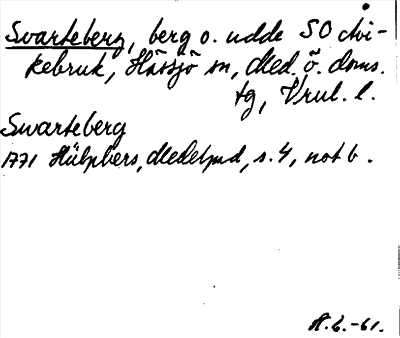 Svarteberg, berg o. udde SO Åvi-
kebruk, Hässjö sn, Med. ö. doms.
tg, Vnrl. l.
Swarteberg
1771 Hülphers, Medelpad, s. 4, not b.
-61.